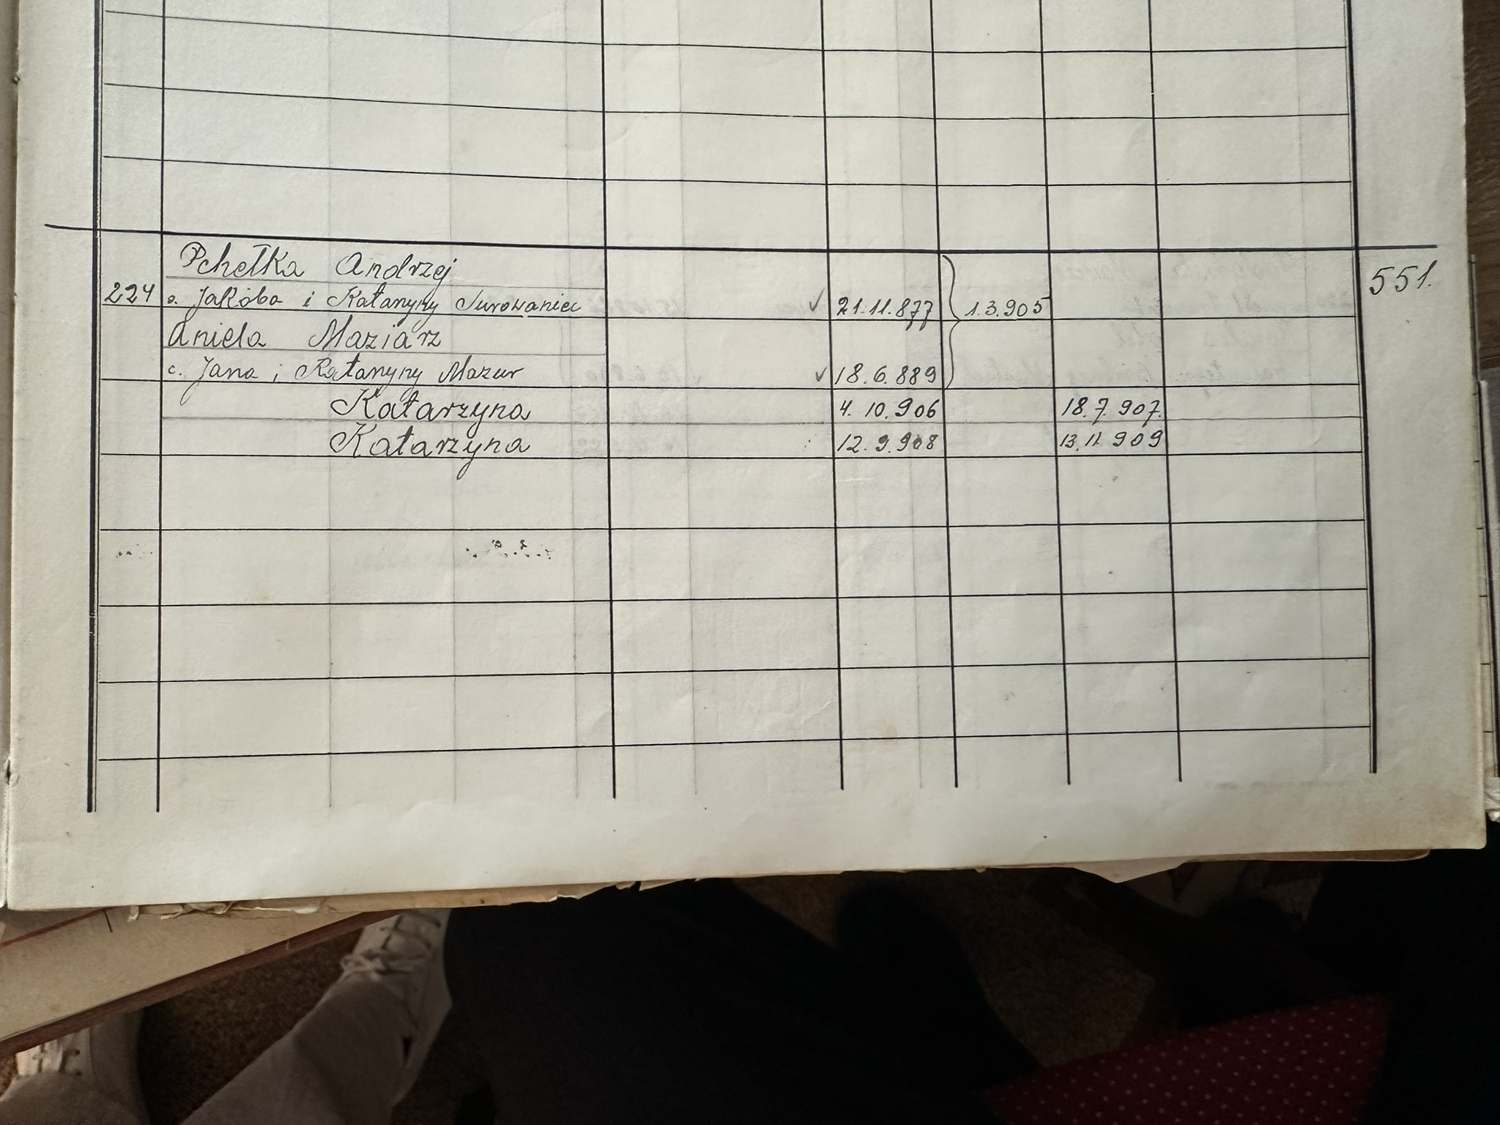 Pchełka Andrzej
224 s. Jakóba i Katarzyny Surowaniec √ 21.11.877 1.3.905 551.
Aniela Maziarz
c. Jana i Katarzyny Mazur √ 18.6.889
Katarzyna 4.10.906 18.7.907.
Katarzyna 12.9.908 13.11.909